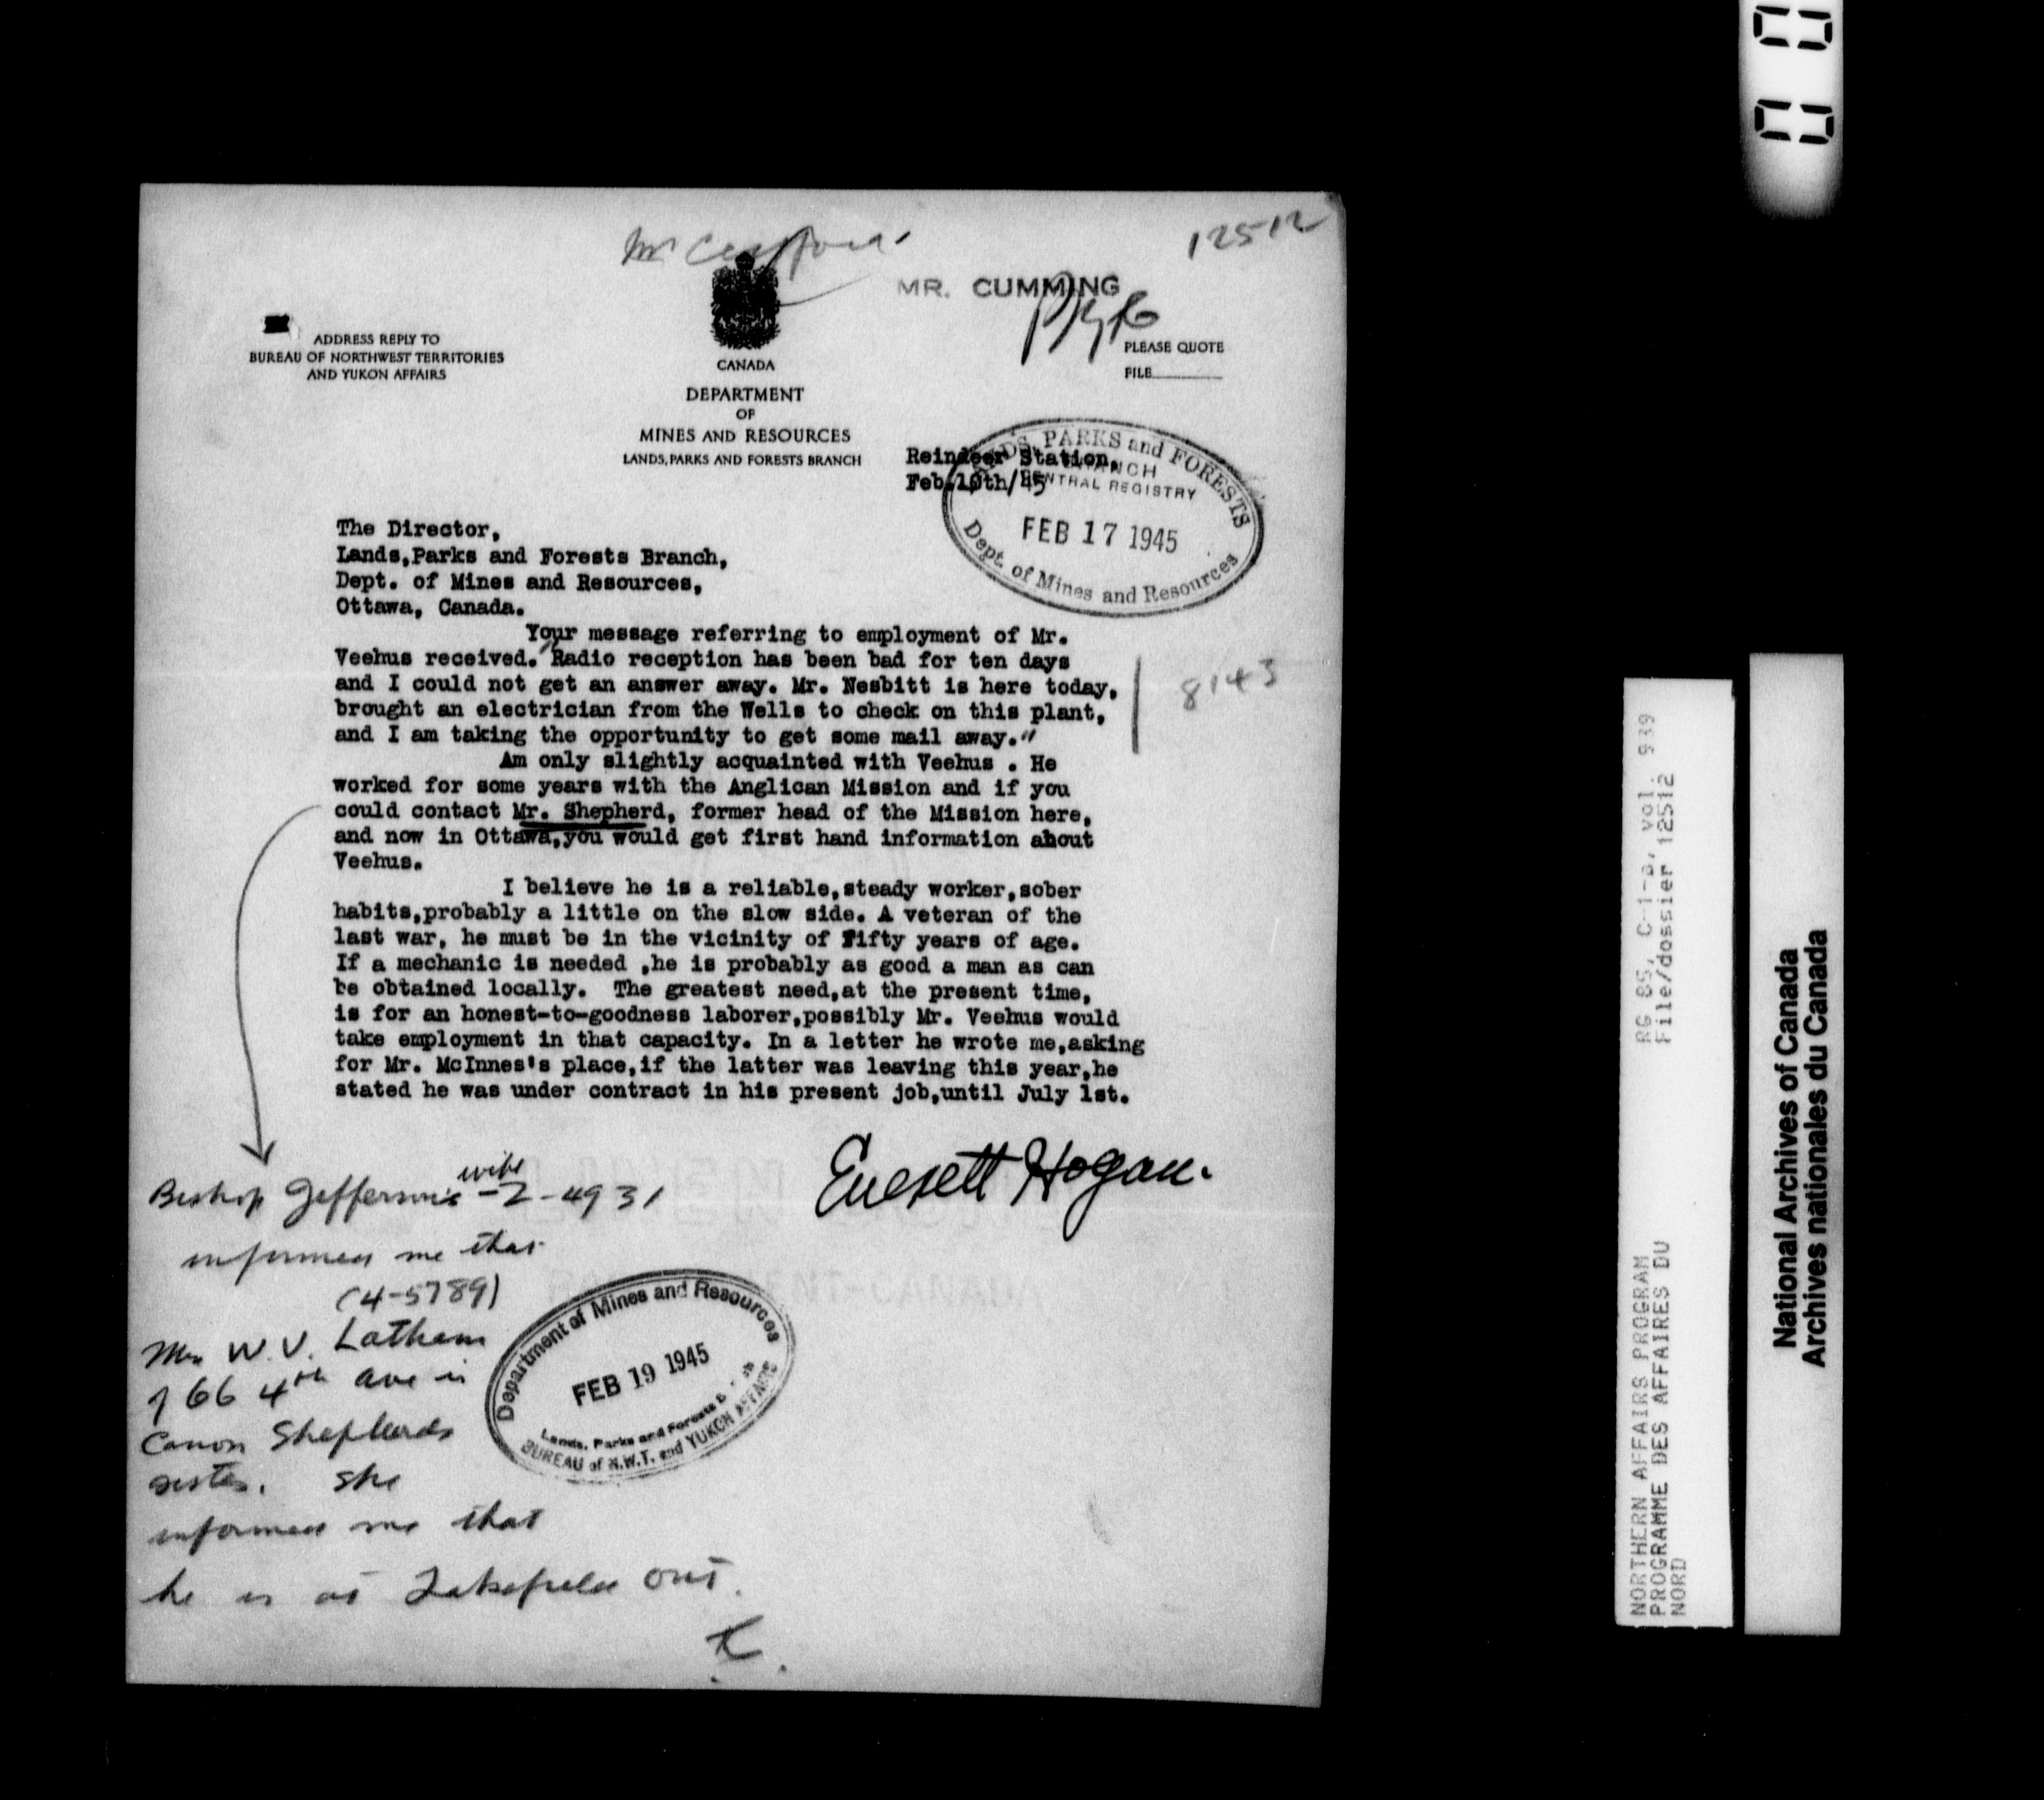 12512
MR. CUMMING
ADDRESS REPLY TO
BUREAU OF NORTHWEST TERRITORIES
AND YUKON AFFAIRS
CANADA
DEPARTMENT
OF
MINES AND RESOURCES
LANDS, PARKS AND FORESTS BRANCH
PLEASE QUOTE
FILE
Reindeer Station,
Feb.10th/45
LANDS, PARKS and FORESTS
BRANCH
CENTRAL REGISTRY
FEB 17 1945
Dept. of Mines and Resources
The Director,
Lands,Parks and Forests Branch,
Dept. of Mines and Resources,
Ottawa, Canada.
Your message referring to employment of Mr.
Veehus received. "Radio reception has been bad for ten days
and I could not get an answer away. Mr. Nesbitt is here today,
brought an electrician from the Wells to check on this plant,
and I am taking the opportunity to get some mail away."
8143
Am only slightly acquainted with Veehus . He
worked for some years with the Anglican Mission and if you
could contact Mr. Shepherd, former head of the Mission here,
and now in Ottawa,you would get first hand information about
Veehus.
I believe he is a reliable,steady worker,sober
habits,probably a little on the slow side. A veteran of the
last war, he must be in the vicinity of fifty years of age.
If a mechanic is needed ,he is probably as good a man as can
be obtained locally. The greatest need,at the present time,
is for an honest-to-goodness laborer,possibly Mr. Veehus would
take employment in that capacity. In a letter he wrote me,asking
for Mr. McInnes's place,if the latter was leaving this year,he
stated he was under contract in his present job,until July 1st.
Everett Hogan.
wife
Bishop Jefferson's -2-4931
informed me that
(4-5789)
Mrs W. V. Latham
of 66 4th ave is
Canon Shepherds
sister. She
informed me that
he is at Lakefield Ont.
Department of Mines and Resources
FEB 19 1945
Lands, Parks and Forests Branch
BUREAU of N.W.T. and YUKON AFFAIRS
RG 85, C-1-a, vol. 939
File/dossier 12512
NORTHERN AFFAIRS PROGRAM
PROGRAMME DES AFFAIRES DU
NORD
National Archives of Canada
Archives nationales du Canada